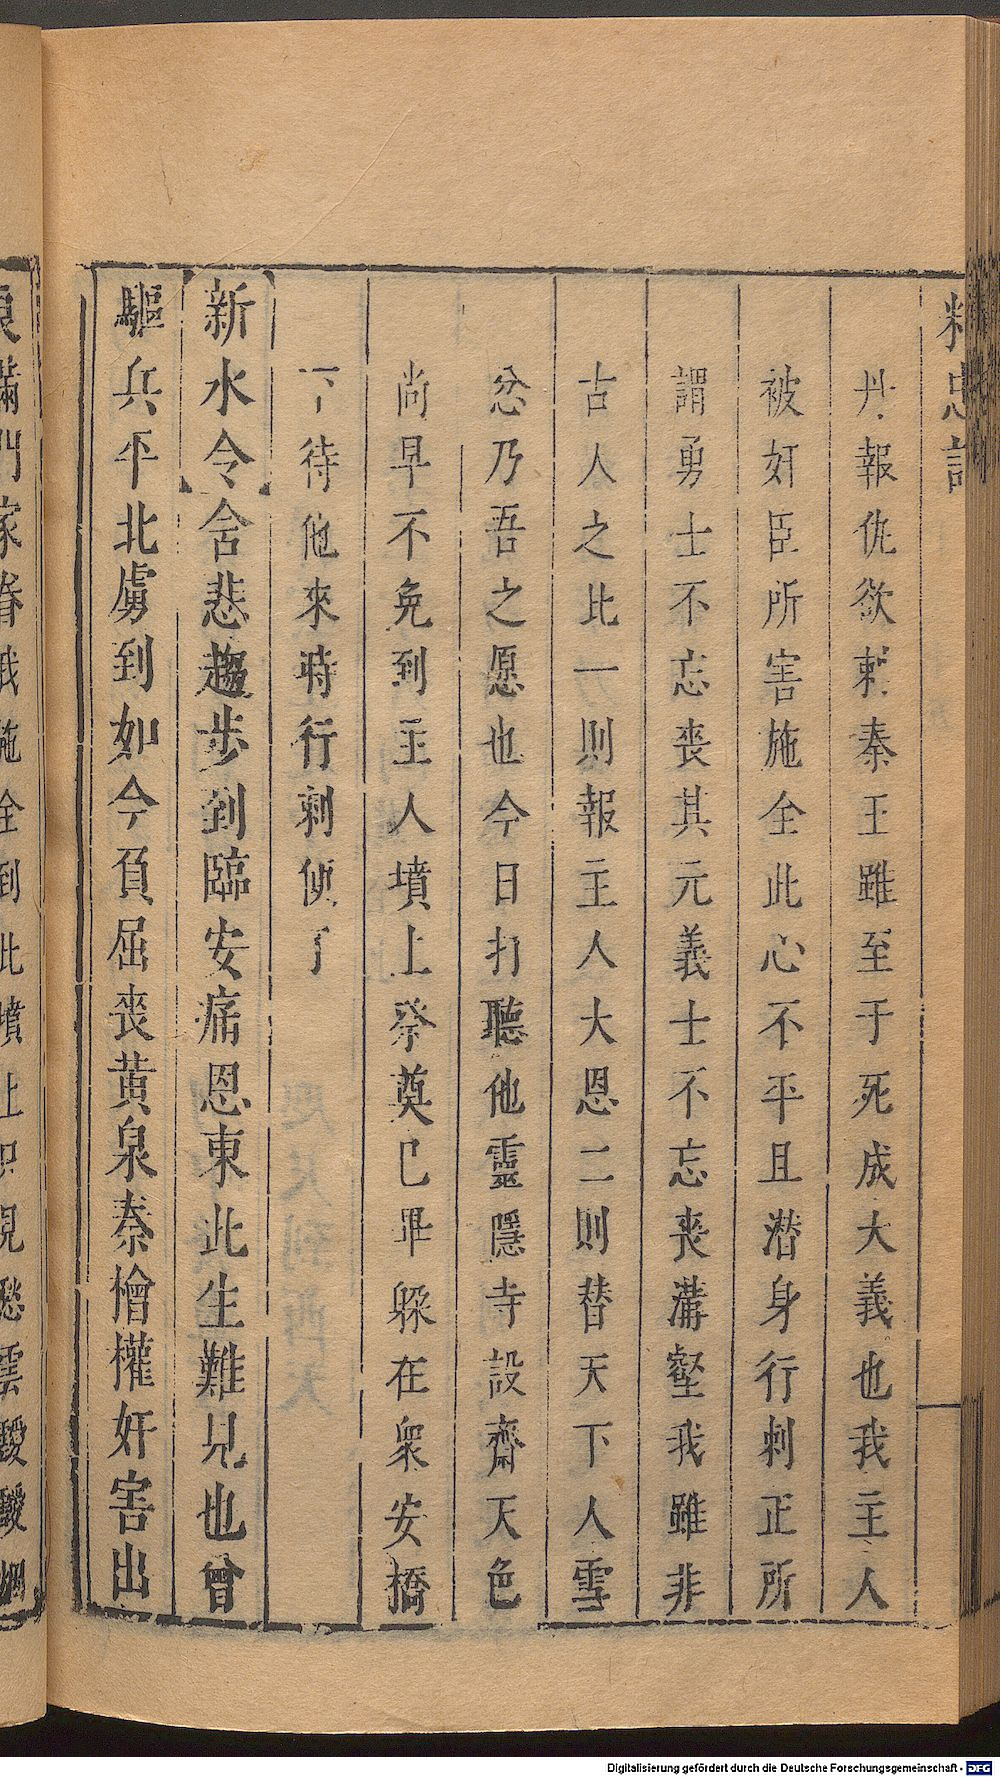 精忠記
丹報仇欲刺秦王雖至于死成大義也我主人
被奸臣所害施全此心不平且潜身行刺正所
謂勇士不忘喪其元義士不忘喪溝壑我雖非
古人之比一則報主人大恩二則替天下人雪
忿乃吾之愿也今日打聽他靈隱寺設齋天色
尚早不免到主人墳上祭奠巳畢躱在衆安橋
下待他來時行刺便了
新水令含悲趨步到臨安痛恩東此生難見也曾
驅兵平北虜到如今負屈喪黃泉秦檜權奸害出
滿門家眷我施全到此墳上只見愁雲靉靉烟
Digitalisierung gefördert durch die Deutsche Forschungsgemeinschaft - DFG